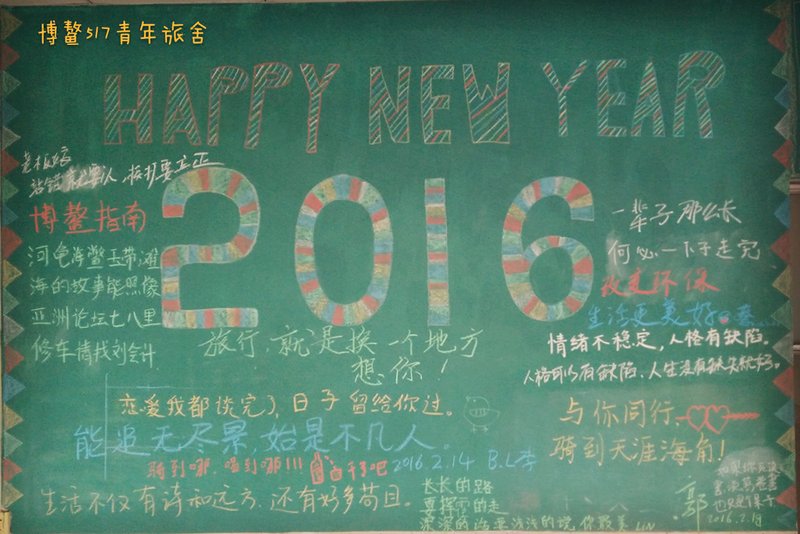 博鳌517青年旅舍
HAPPY NEW YEAR
2016
老板娘
站错就要认,挨打要立正
博鳌指南
河龟海鳖玉带滩
海的故事能照像
亚洲论坛七八里
修车请找刘会计
一辈子那么长
何必一下子走完
低走环保
生活更美好
情绪不稳定,人格有缺陷。
人格可以有缺陷、人生没有缺失就好。
旅行,就是换一个地方
想你!
恋爱我都谈完了,日子留给你过。
能追无尽景,始是不凡人。
2016.2.14 B.L李
骑到哪,唱到哪!!!
干了吧
与你同行
骑到天涯海角!
生活不仅有诗和远方,还有好多苟且。
长长的路
要挥霍的走
深深的话要浅浅的说 你最美 LIN
郭
2016.2.19